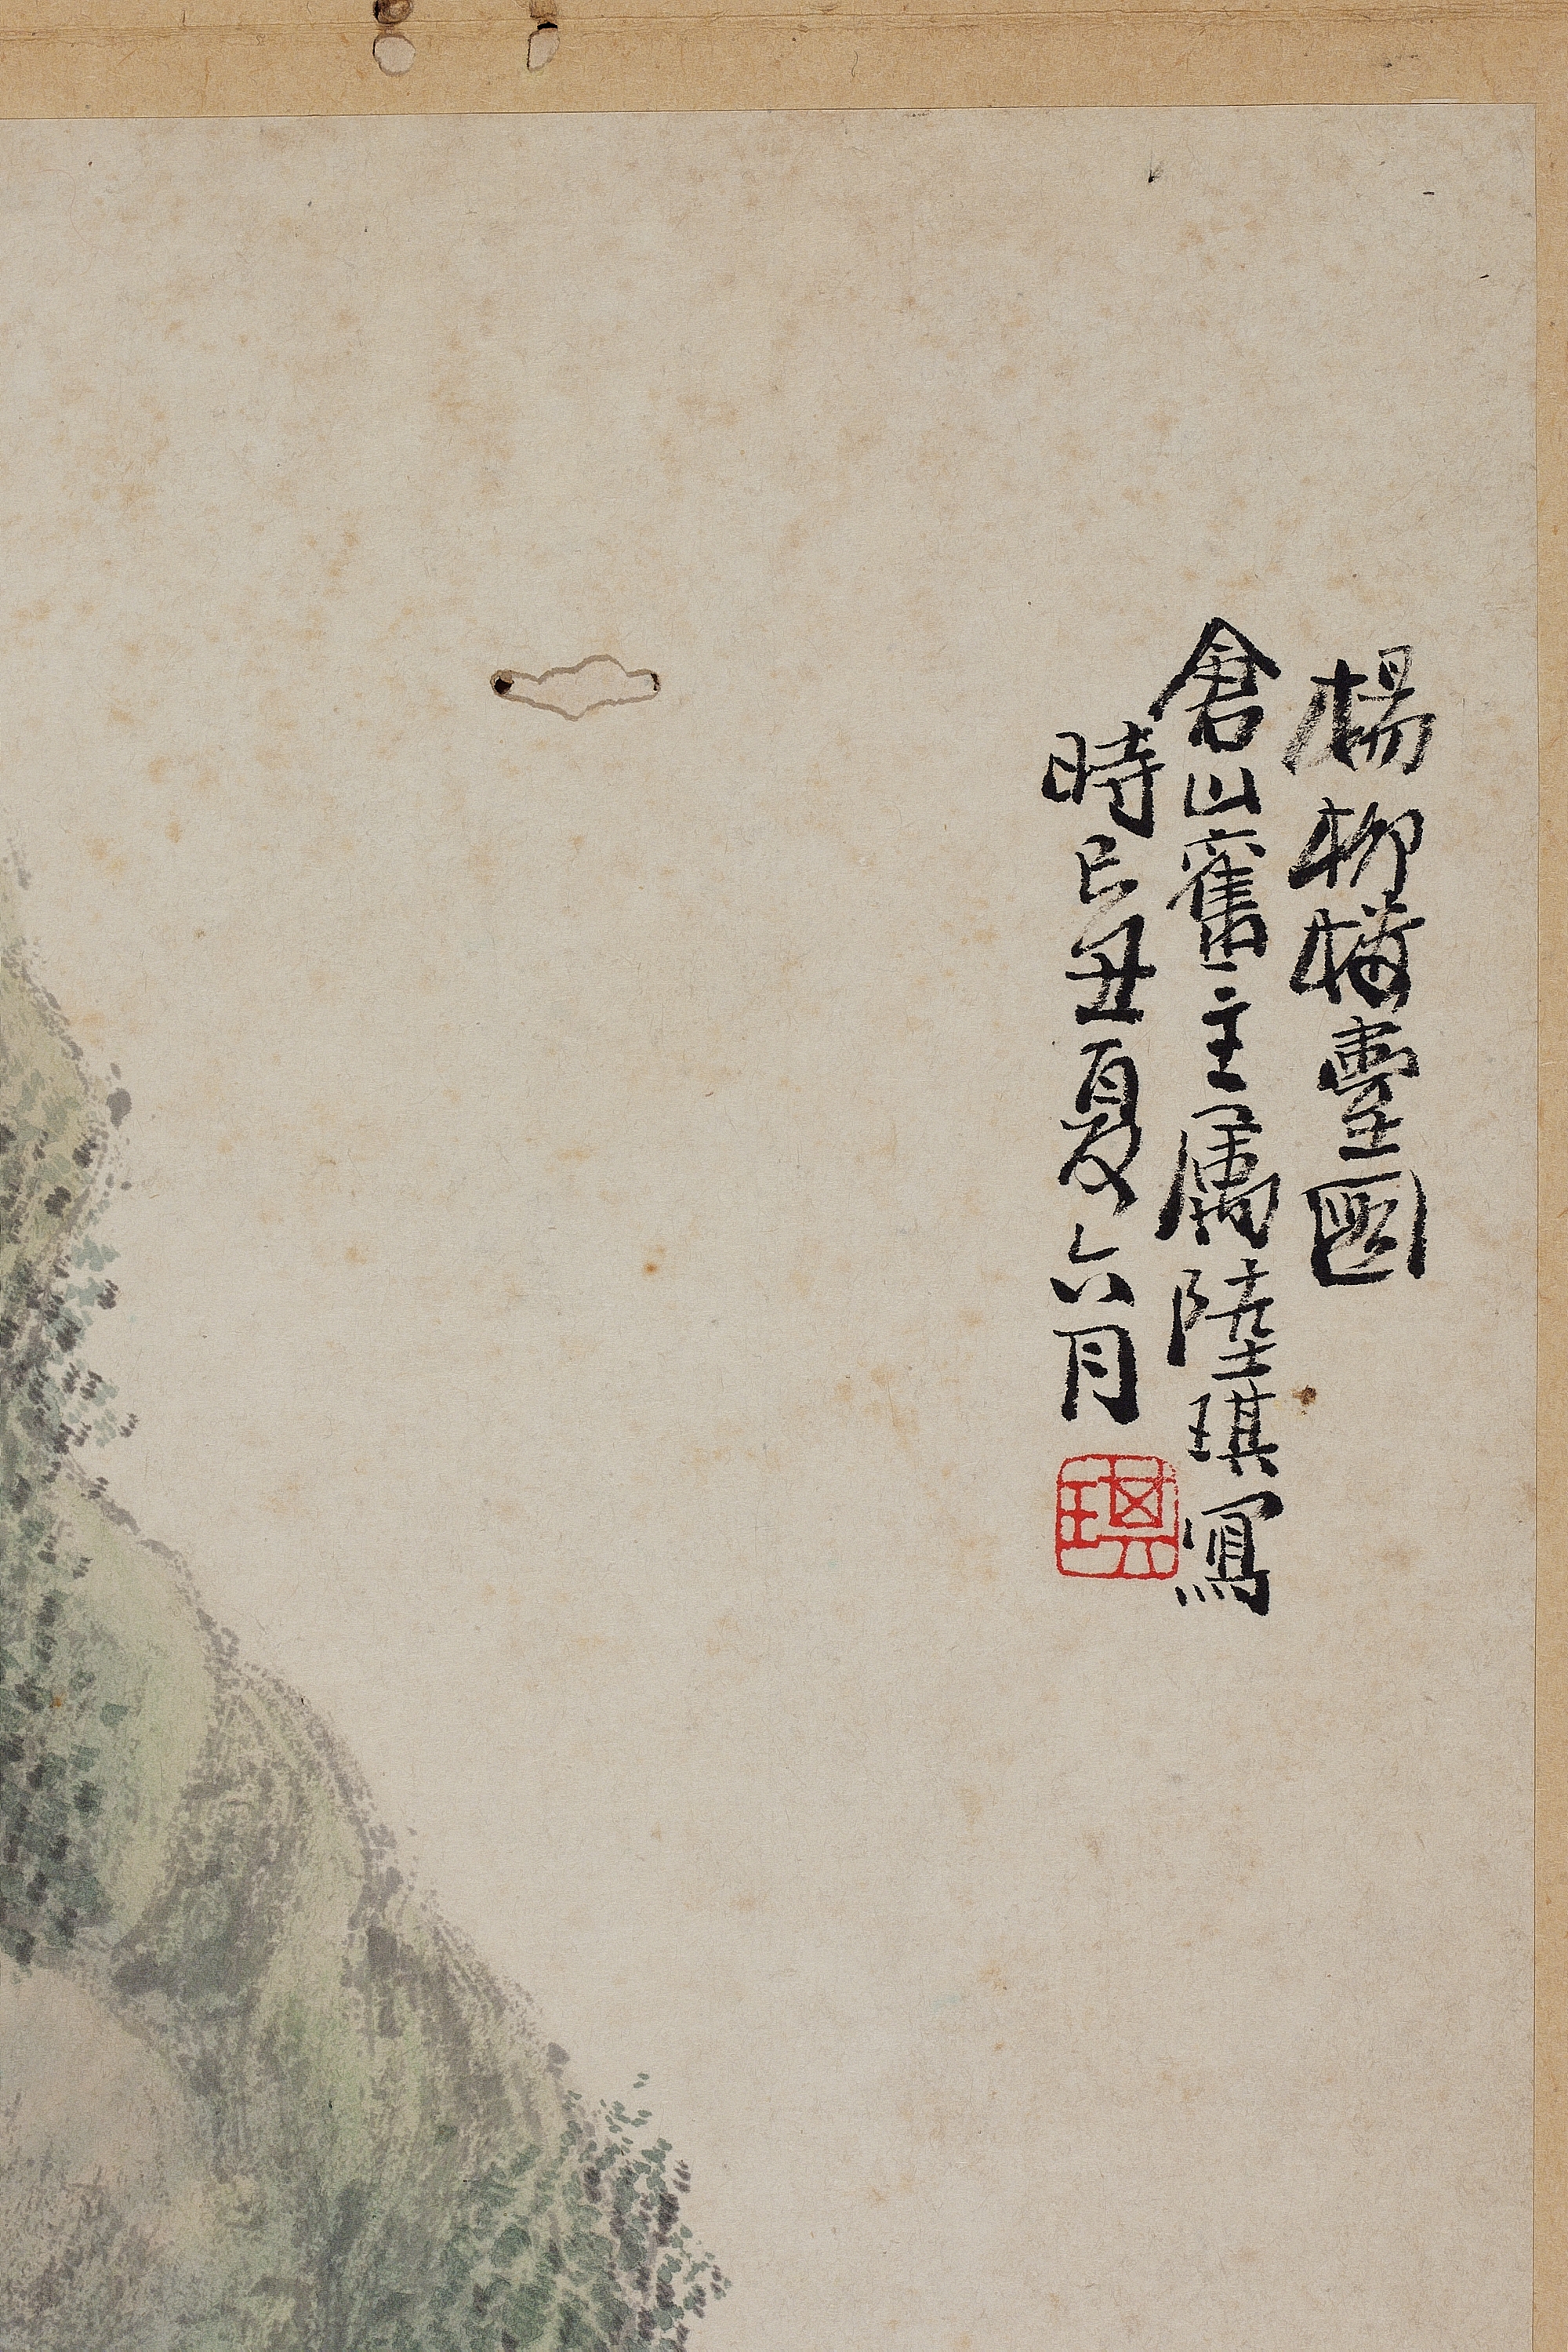 楊柳樓臺圖
倉山舊主属陸琪寫
時己丑夏六月
琪